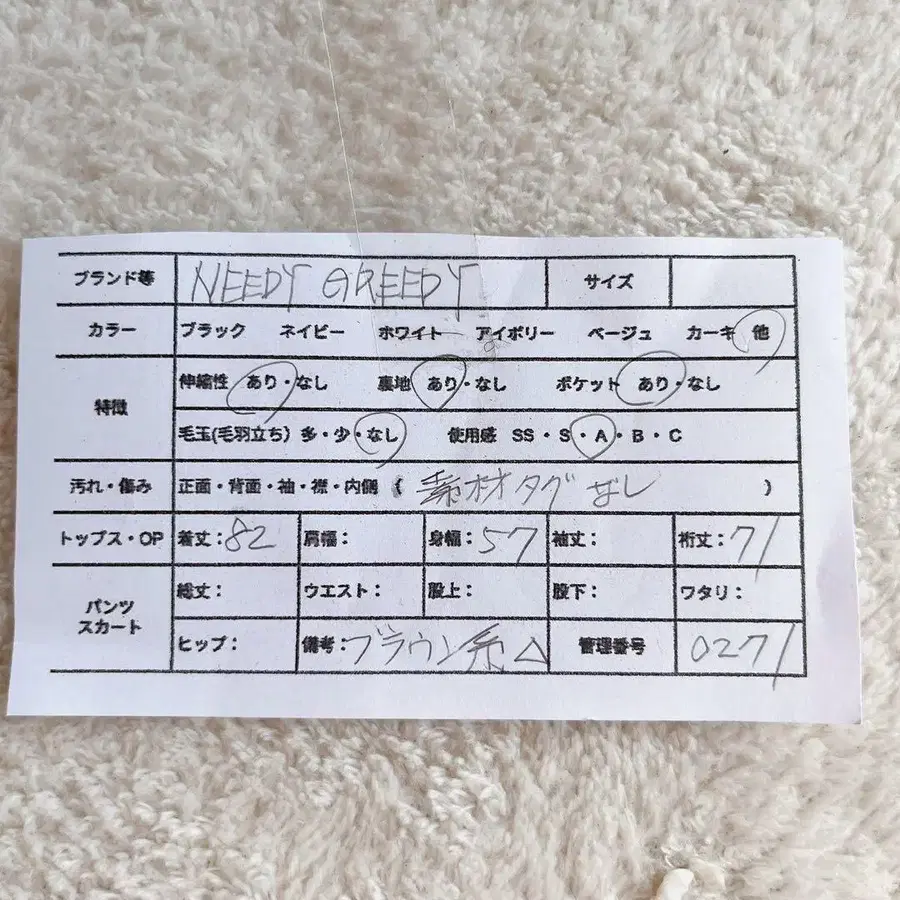 ブランド等 NEEDY GREEDY サイズ
カラー ブラック ネイビー ホワイト アイボリー ベージュ カーキ 他
特徴 伸縮性 あり・なし 裏地 あり・なし ポケット あり・なし
毛玉(毛羽立ち) 多・少・なし 使用感 SS・S・A・B・C
汚れ・傷み 正面・背面・袖・襟・内側 ( 素材タグなし )
トップス・OP 着丈:82 肩幅: 身幅:57 袖丈: 裄丈:71
パンツ スカート 総丈: ウエスト: 股上: 股下: ワタリ:
ヒップ: 備考:ブラウン系△ 管理番号 0271